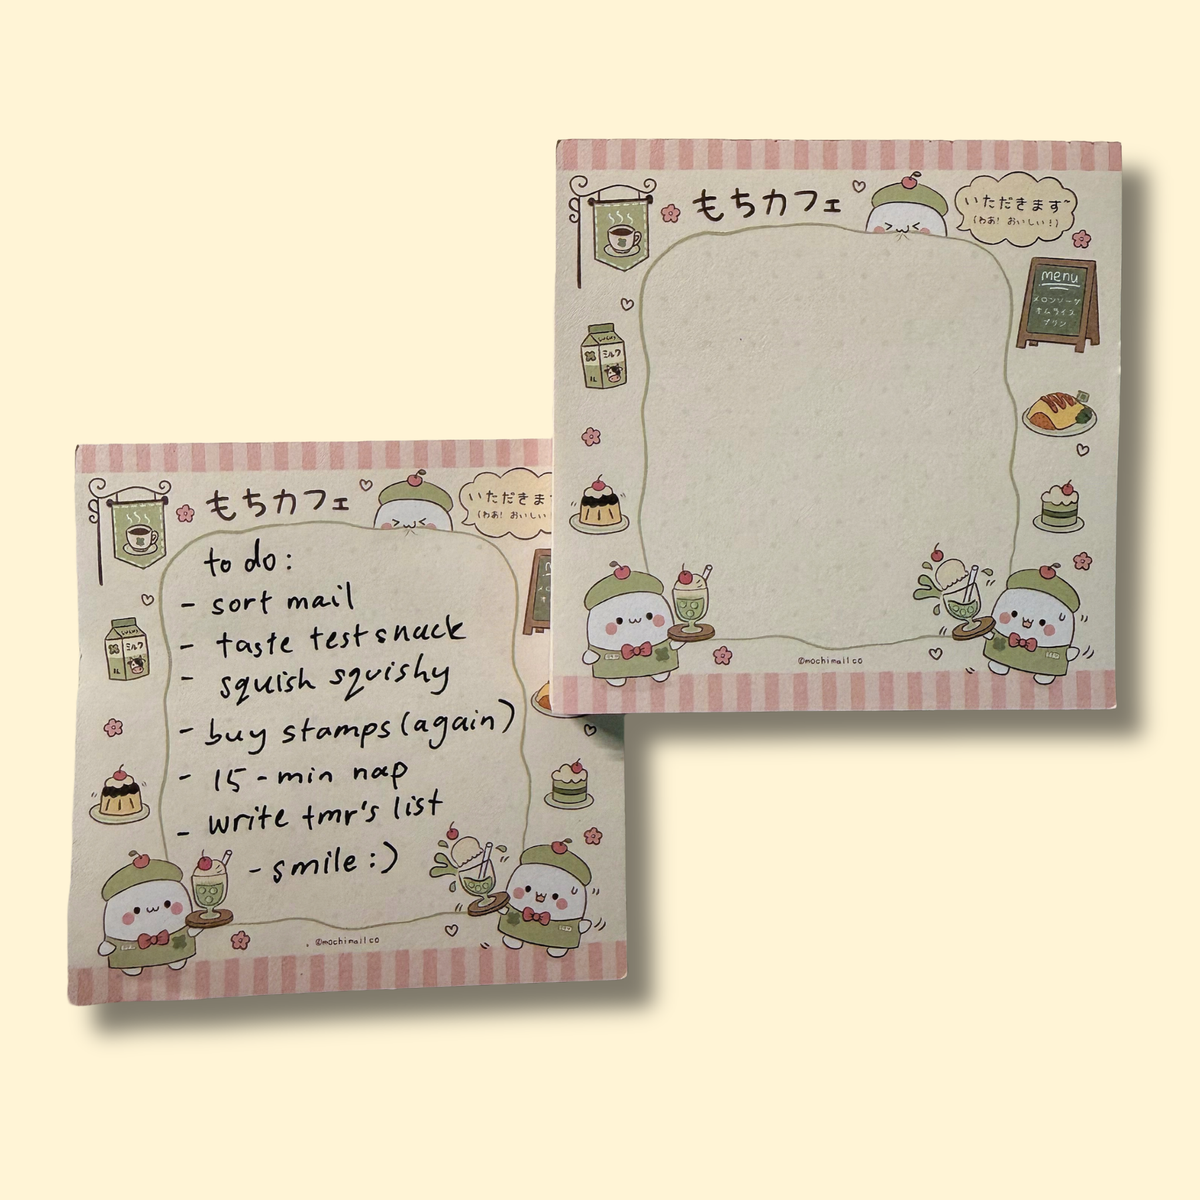 もちカフェ
いただきます~
(わあ! おいしい!)
menu
メロンソーダ
オムライス
プリン
ミルク
©mochimail co
もちカフェ
いただきま
(わあ! おいしい
ミルク
to do:
- sort mail
- taste test snack
- squish squishy
- buy stamps (again)
- 15-min nap
- write tmr's list
- smile :)
©mochimail co